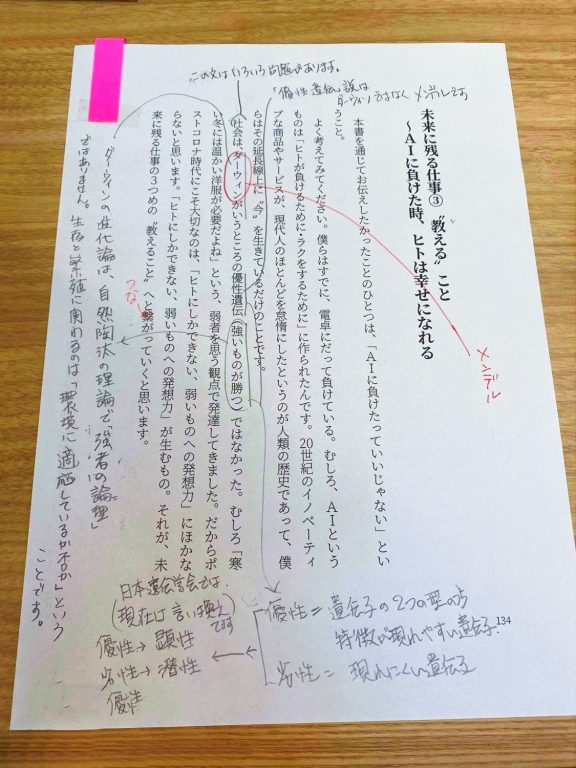 この文はいろいろ問題があります。
「優性遺伝」説は
ダーウィンではなくメンデルです
未来に残る仕事③ 〝教える〟こと
～AIに負けた時、ヒトは幸せになれる
本書を通じてお伝えしたかったことのひとつは、「AIに負けたっていいじゃない」とい
うこと。
よく考えてみてください。僕らはすでに、電卓にだって負けている。むしろ、AIという
ものは「ヒトが負けるために・ラクをするために」に作られたんです。20世紀のイノベーティ
ブな商品やサービスが、現代人のほとんどを怠惰にしたというのが人類の歴史であって、僕
らはその延長線上に〝今〟を生きているだけのことです。
社会は、ダーウィンがいうところの優性遺伝（強いものが勝つ）ではなかった。むしろ「寒
い冬には温かい洋服が必要だよね」という、弱者を思う観点で発達してきました。だからポ
ストコロナ時代にこそ大切なのは、「ヒトにしかできない、弱いものへの発想力」にほかな
らないと思います。「ヒトにしかできない、弱いものへの発想力」が生むもの。それが、未
来に残る仕事の3つめの〝教えること〟へと繋がっていくと思います。
メンデル
つな
ダーウィンの進化論は、自然陶汰の理論で「強者の論理」
ではありません。生存と繁殖に関わるのは「環境に適応しているか否か」という
ことです。
134
優性＝遺伝子の2つの型の内
特徴が現れやすい遺伝子.
劣性＝現れにくい遺伝子
日本遺伝学会では、
（現在は言い換え
です
優性→顕性
劣性→潜性
優性